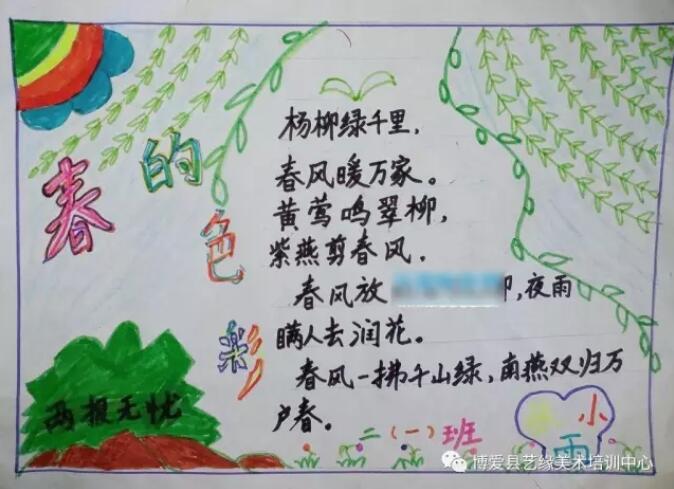 春的色彩
杨柳绿千里,
春风暖万家。
黄莺鸣翠柳,
紫燕剪春风.
春风放
,夜雨
瞒人去润花。
春风一拂千山绿,南燕双归万
户春。
两报无忧
二(一)班
小
雨
博爱县艺缘美术培训中心